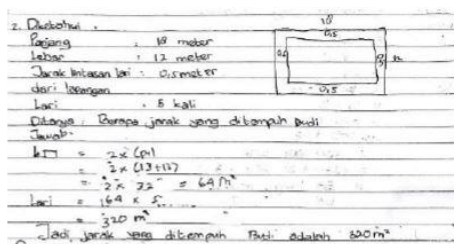 2. Diketahui :
18
Panjang : 18 meter
0,5
Lebar : 12 meter
12
Jarak lintasan lari : 0,5 meter
dari lapangan
0,5
Lari : 5 kali
Ditanya : Berapa jarak yang ditempuh Budi
Jawab :
= 2 x (p+l)
= 2 x (18+12)
= 2 x 32 = 64 m²
Lari = 64 x 5
= 320 m²
Jadi jarak yang ditempuh Budi adalah 320 m²